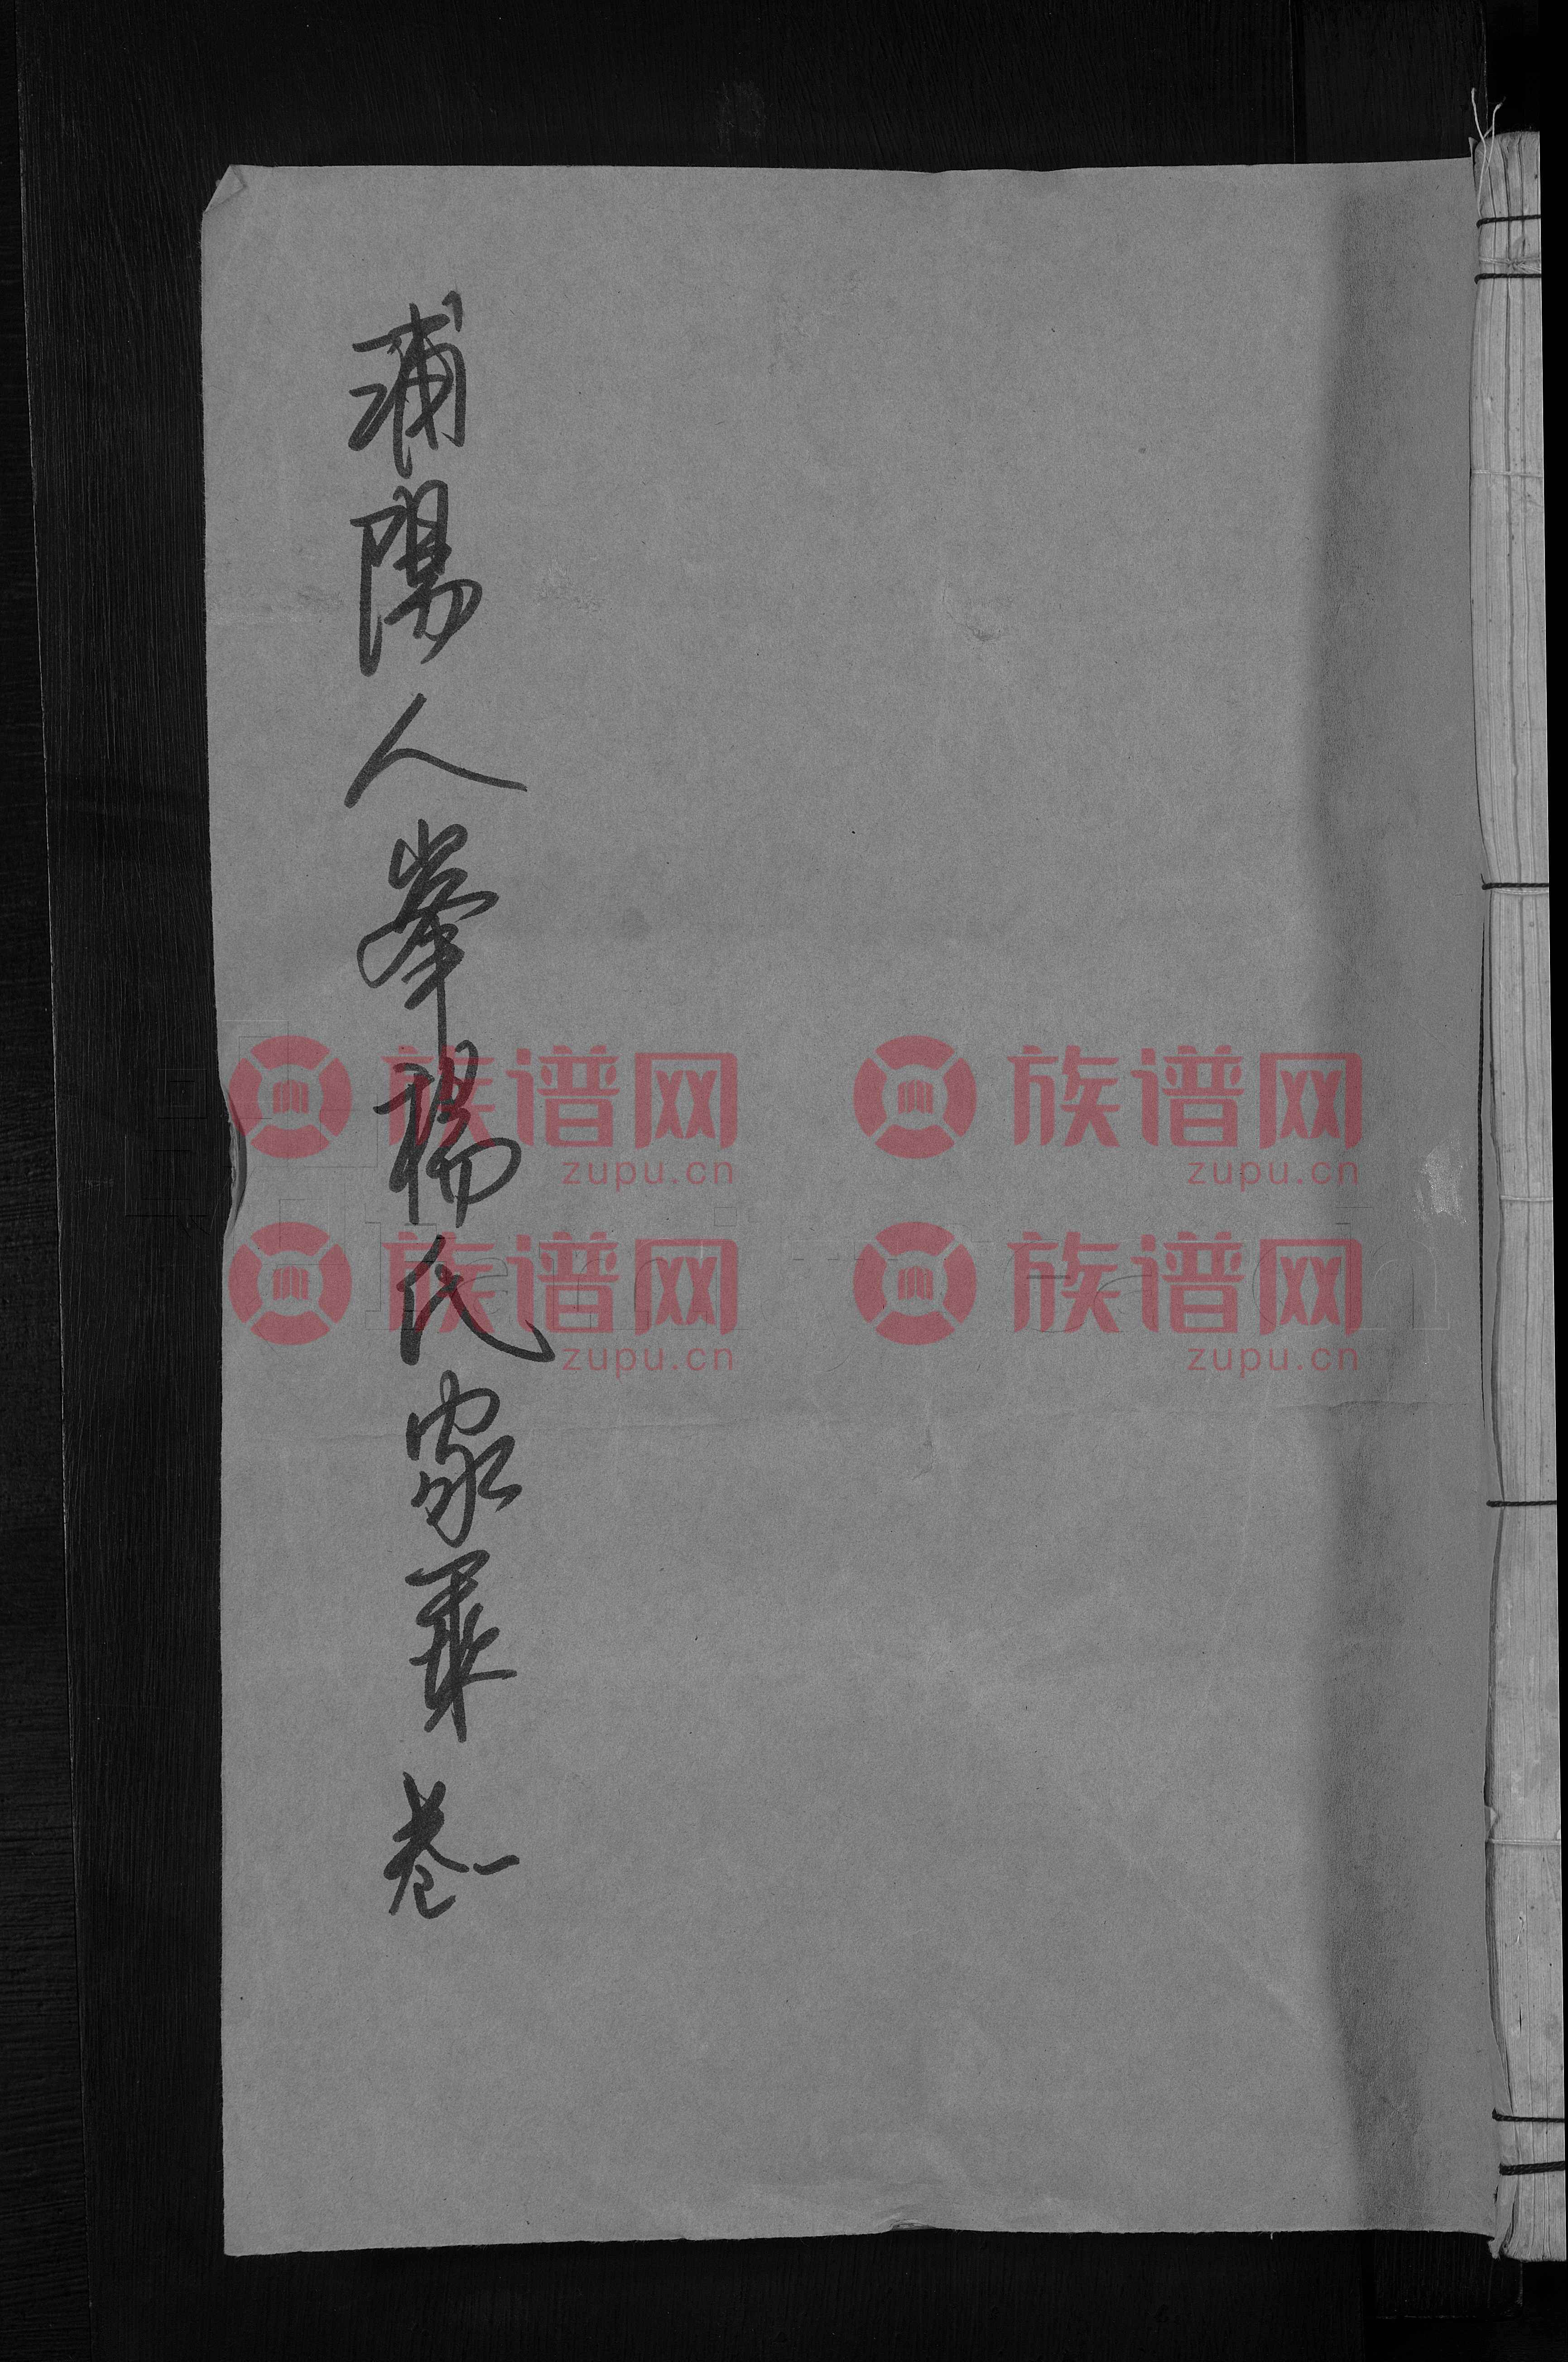 浦陽人峯楊氏家乘 卷一
族谱网 族谱网
zupu.cn zupu.cn
族谱网 族谱网
zupu.cn zupu.cn